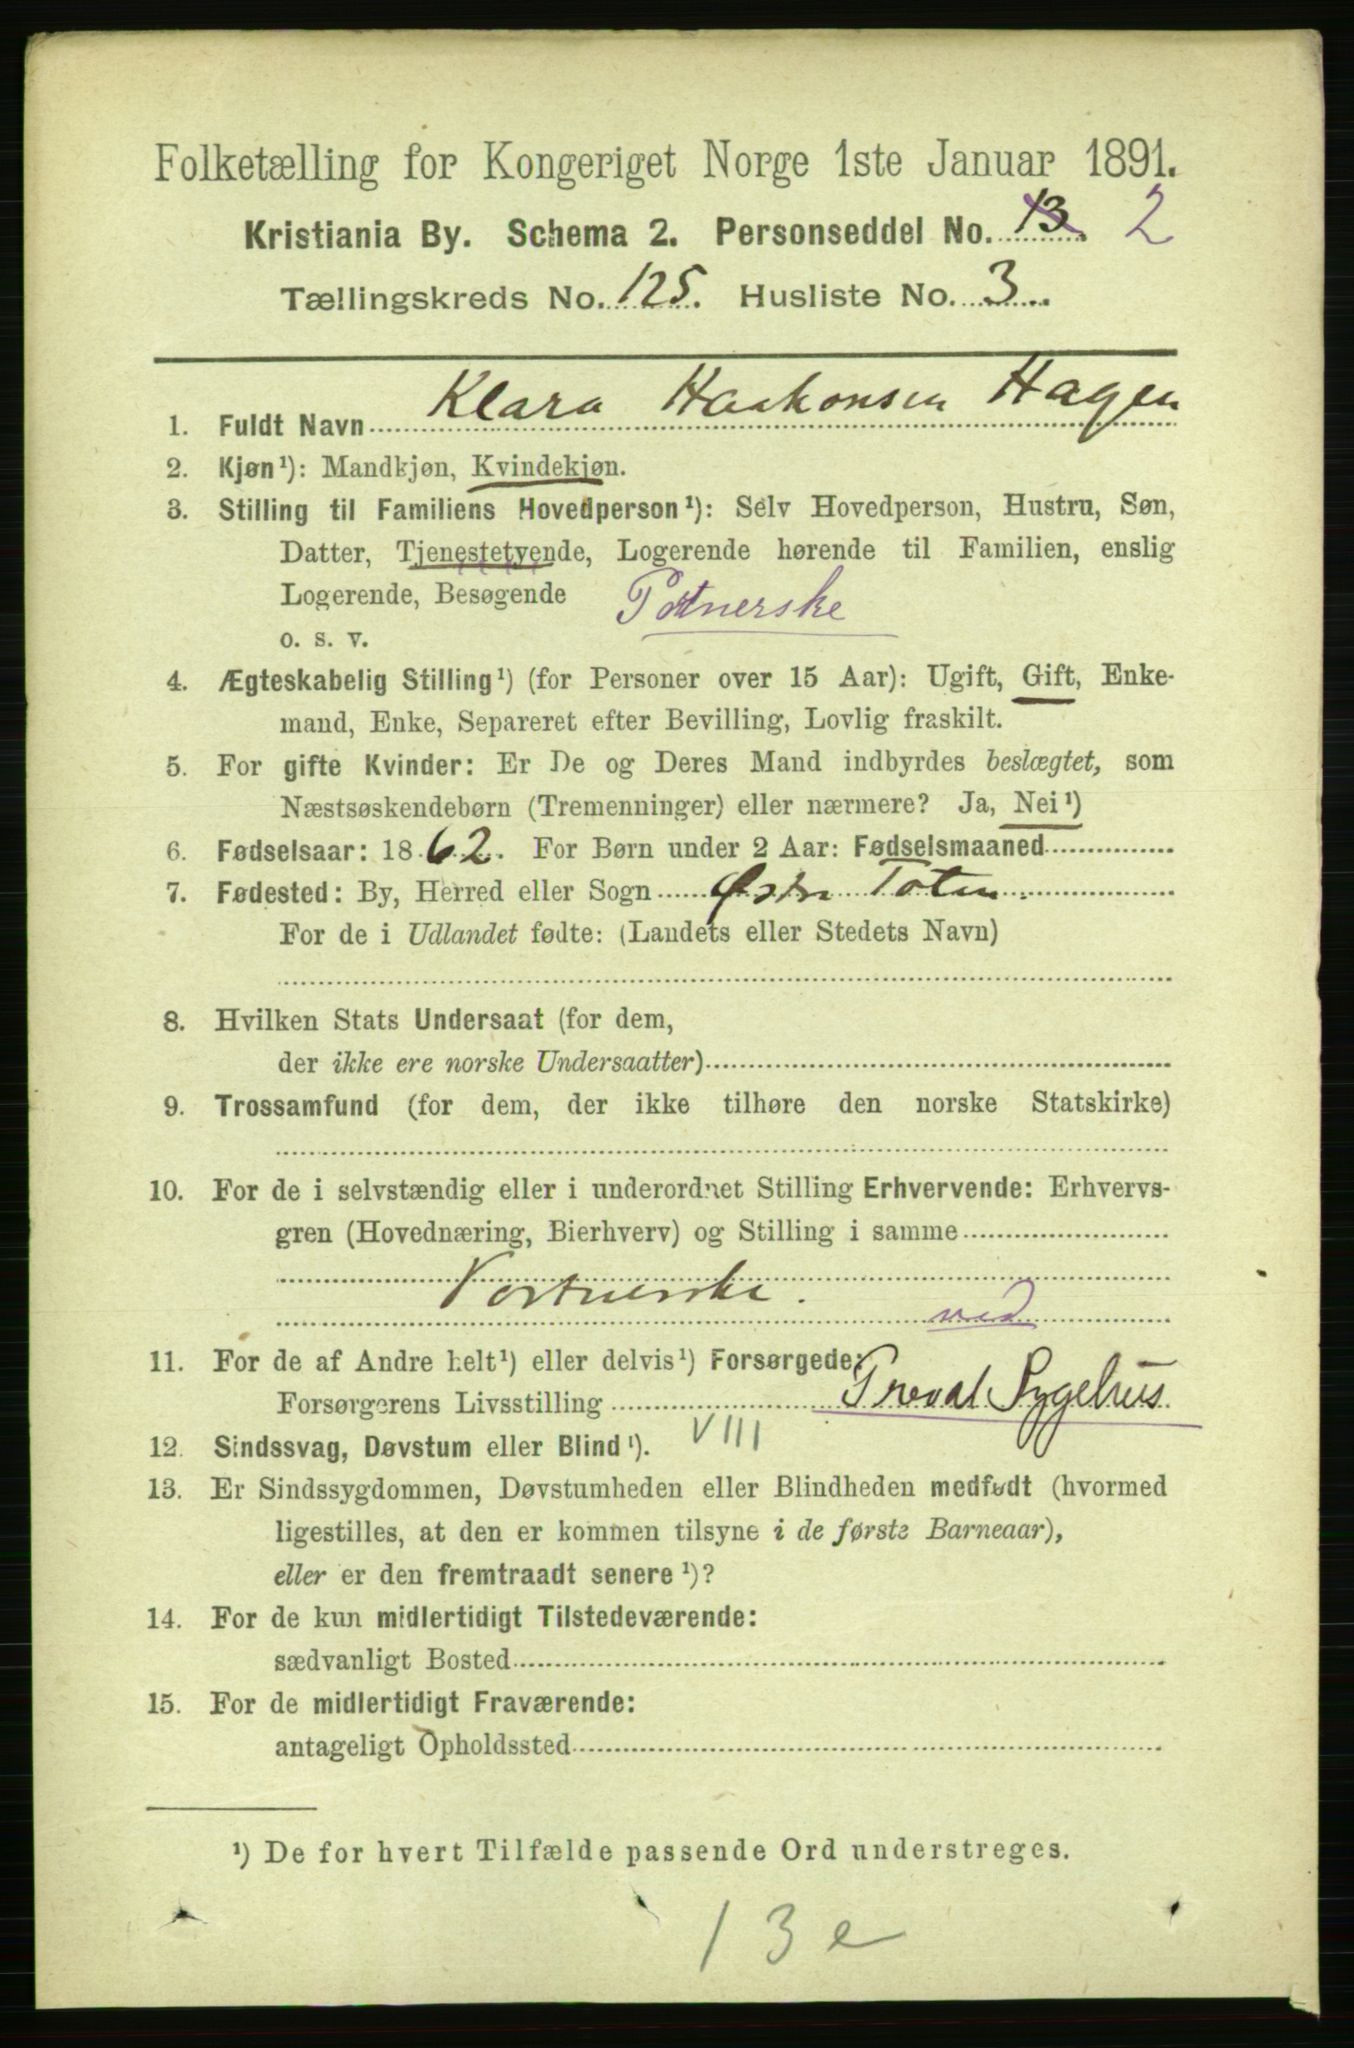 Folketælling for Kongeriget Norge 1ste Januar 1891.
Kristiania By. Schema 2. Personseddel No. 13 2
Tællingskreds No. 125. Husliste No. 3
1. Fuldt Navn Klara Haakonsen Hagen
2. Kjøn¹): Mandkjøn, Kvindekjøn.
3. Stilling til Familiens Hovedperson¹): Selv Hovedperson, Hustru, Søn,
Datter, Tjenestetyende, Logerende hørende til Familien, enslig
Logerende, Besøgende Portnerske
o. s. v.
4. Ægteskabelig Stilling¹) (for Personer over 15 Aar): Ugift, Gift, Enke-
mand, Enke, Separeret efter Bevilling, Lovlig fraskilt.
5. For gifte Kvinder: Er De og Deres Mand indbyrdes beslægtet, som
Næstsøskendebørn (Tremenninger) eller nærmere? Ja, Nei¹)
6. Fødselsaar: 1862. For Børn under 2 Aar: Fødselsmaaned
7. Fødested: By, Herred eller Sogn Østre Toten.
For de i Udlandet fødte: (Landets eller Stedets Navn)
8. Hvilken Stats Undersaat (for dem,
der ikke ere norske Undersaatter)
9. Trossamfund (for dem, der ikke tilhøre den norske Statskirke)
10. For de i selvstændig eller i underordnet Stilling Erhvervende: Erhvervs-
gren (Hovednæring, Bierhverv) og Stilling i samme
Portnerske. ved
11. For de af Andre helt¹) eller delvis¹) Forsørgede:
Forsørgerens Livsstilling Privat Sygehus.
VIII
12. Sindssvag, Døvstum eller Blind¹).
13. Er Sindssygdommen, Døvstumheden eller Blindheden medfødt (hvormed
ligestilles, at den er kommen tilsyne i de første Barneaar),
eller er den fremtraadt senere¹)?
14. For de kun midlertidigt Tilstedeværende:
sædvanligt Bosted
15. For de midlertidigt Fraværende:
antageligt Opholdssted
¹) De for hvert Tilfælde passende Ord understreges.
13e